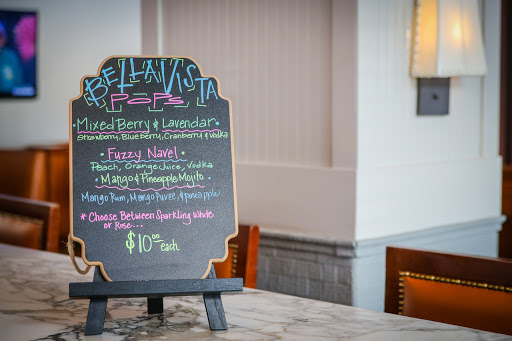 BELLA VISTA
POPS
Mixed Berry & Lavendar
Strawberry, Blueberry, Cranberry & Vodka
Fuzzy Navel
Peach, Orange Juice, Vodka
Mango & Pineapple Mojito
Mango Rum, Mango Puree, & Pineapple
* Choose Between Sparkling White
or Rose...
$10.00 each